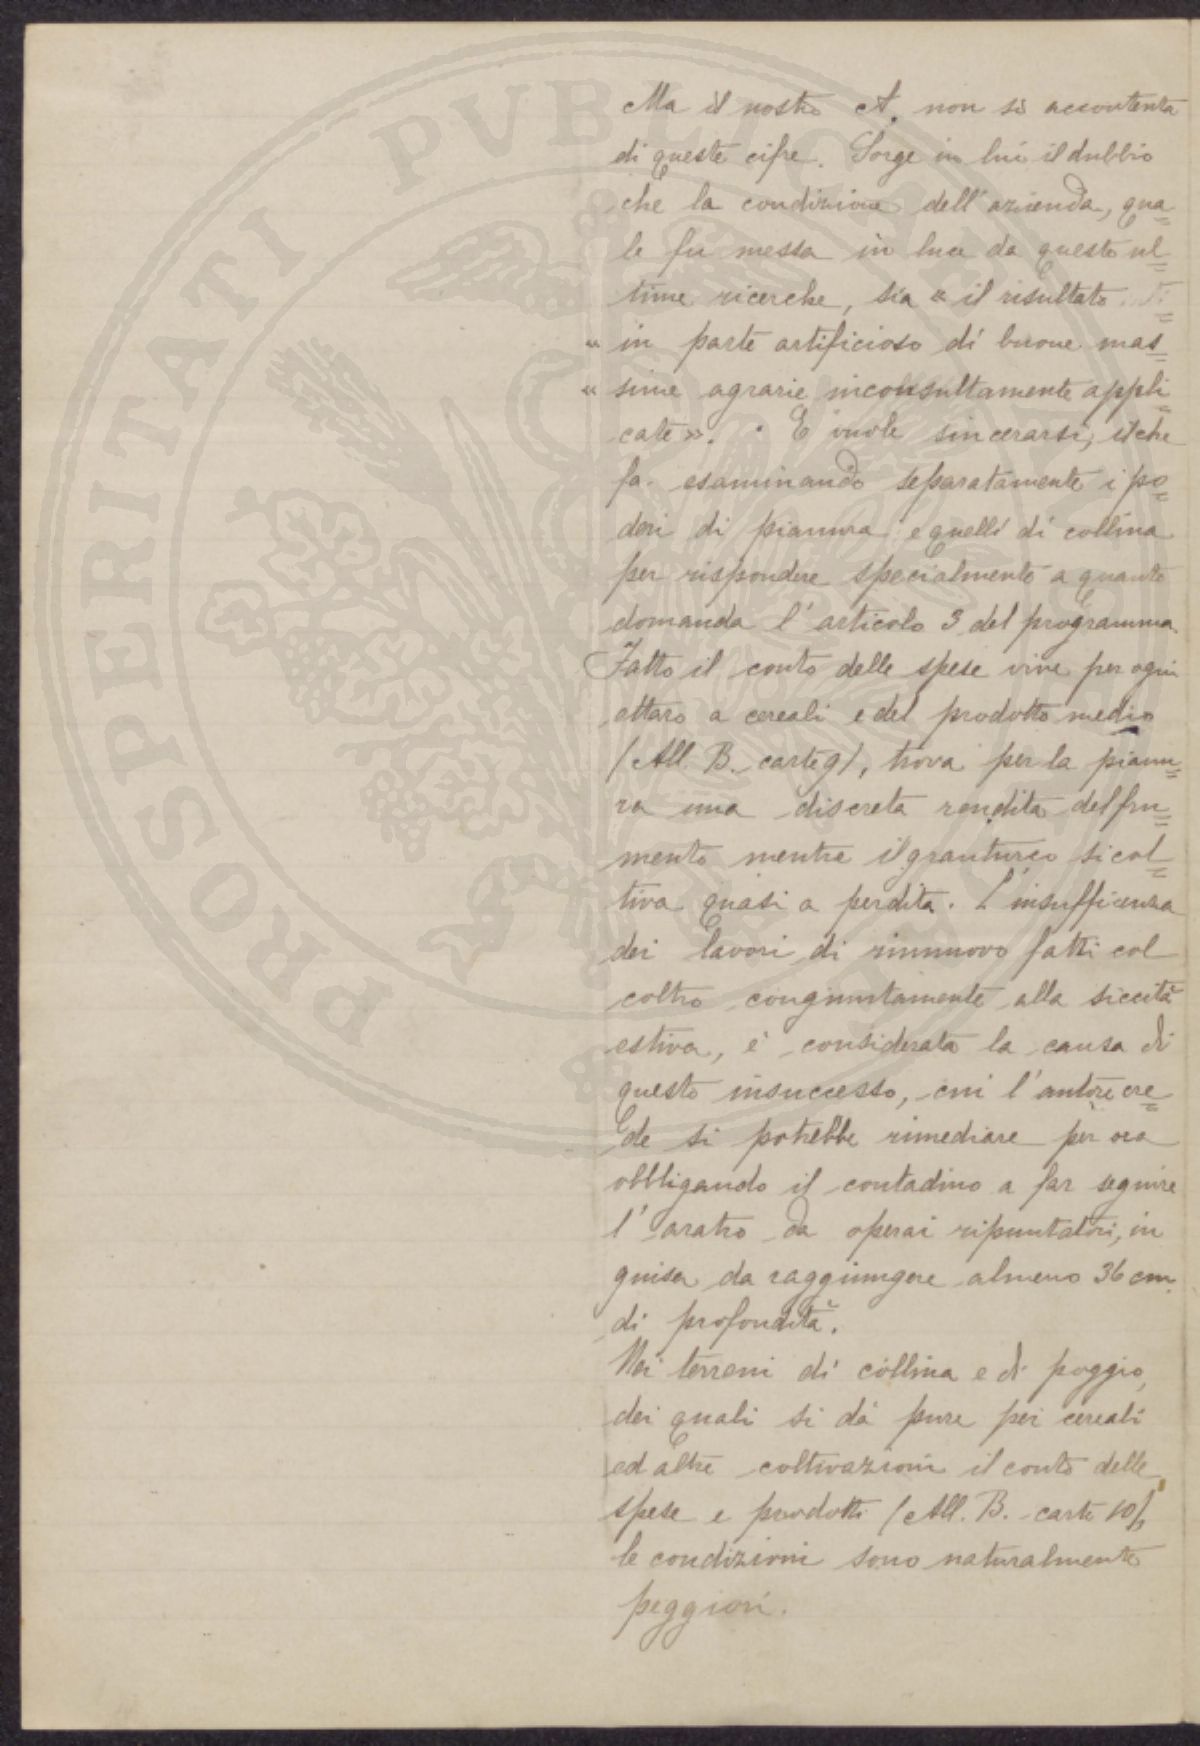 Ma il nostro A. non si accontenta
di queste cifre. Sorge in lui il dubbio
che la condizione dell'azienda, qua=
le fu messa in luce da queste ul=
time ricerche, sia « il risultato
« in parte artificioso di buone mas=
« sime agrarie inconsultamente appli=
cate ». E vuole sincerarsi, ilche
fa esaminando separatamente i po=
deri di pianura e quelli di collina
per rispondere specialmente a quanto
domanda l'articolo 3 del programma.
Fatto il conto delle spese vive per ogni
ettaro a cereali e del prodotto medio
(All. B. carte 9), trova per la pianu=
ra una discreta rendita del fru=
mento mentre il granturco si col=
tiva quasi a perdita. L'insufficenza
dei lavori di rinnuovo fatti col
coltro congiuntamente alla siccità
estiva, è considerata la causa di
questo insuccesso, cui l'autore cre=
de si potrebbe rimediare per ora
obbligando il contadino a far seguire
l'aratro da operai ripuntatori, in
guisa da raggiungere almeno 36 cm.
di profondità.
Nei terreni di collina e di poggio,
dei quali si dà pure pei cereali
ed altre coltivazioni il conto delle
spese e prodotti (All. B. carte 10),
le condizioni sono naturalmente
peggiori.
PROSPERITATI PVBLICAE